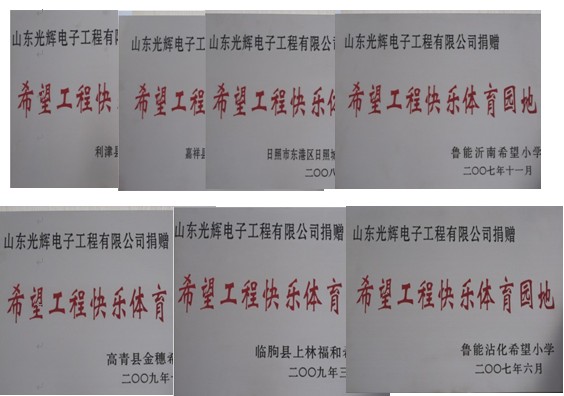 山东光辉电子工程有
希望工程快
利津县
山东光辉电子工程
希望工程
嘉祥县
山东光辉电子工程有限公司
希望工程快乐
日照市东港区日照
二〇〇八
山东光辉电子工程有限公司捐赠
希望工程快乐体育园地
鲁能沂南希望小学
二〇〇七年十一月
山东光辉电子工程有限公司捐赠
希望工程快乐体育
高青县金穗
二〇〇九年
山东光辉电子工程有限公司捐赠
希望工程快乐体育
临朐县上林福和
二〇〇九年三
山东光辉电子工程有限公司捐赠
希望工程快乐体育园地
鲁能沾化希望小学
二〇〇七年六月